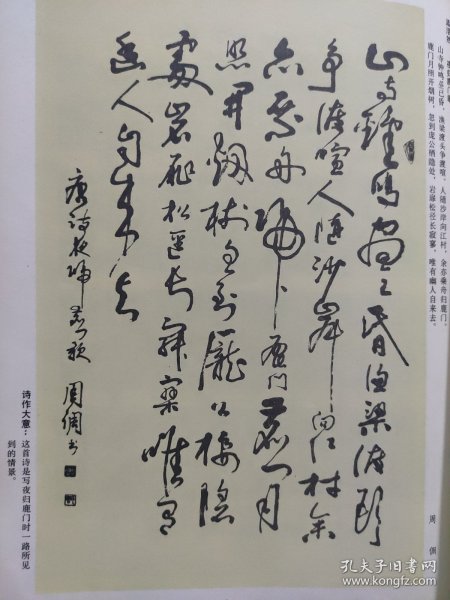 山寺钟鸣昼已昏，渔梁渡头争渡喧。人随沙岸向江村，余亦乘舟归鹿门。
鹿门月照开烟树，忽到庞公栖隐处。岩扉松径长寂寥，唯有幽人自来去。
山寺鐘鳴晝已昏渔梁渡头
争渡喧人随沙岸向江村余
亦乘舟歸鹿门鹿门月
照开烟树忽到龐公棲隐
處岩扉松逕长寂寥唯有
幽人自来去
唐诗夜歸鹿门歌 周倜书
周倜
诗作大意：这首诗是写夜归鹿门时一路所见
到的情景。
孔夫子旧书网
www.kongfz.com